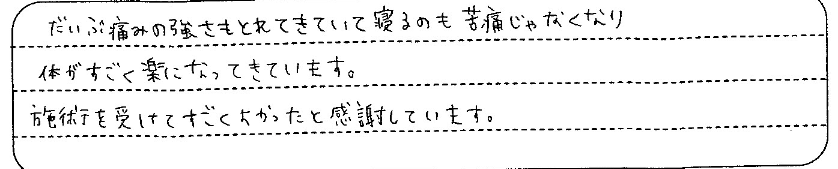 だいぶ痛みの強さもとれてきていて寝るのも苦痛じゃなくなり
体がすごく楽になってきています。
施術を受けてすごくよかったと感謝しています。